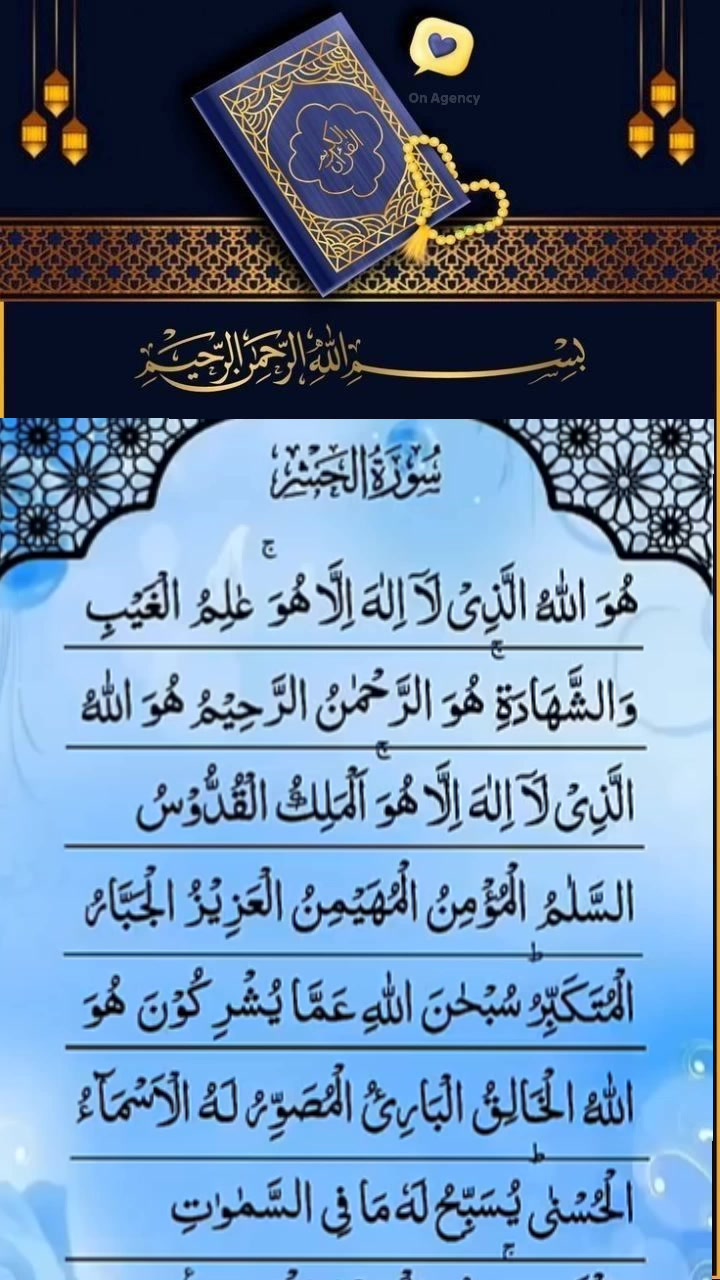 On Agency
القرآن الكريم
بِسْمِ اللَّهِ الرَّحْمَنِ الرَّحِيمِ
سُورَةُ الحَشْرِ
هُوَ اللهُ الَّذِیْ لَاۤ اِلٰهَ اِلَّا هُوَ ۚ عٰلِمُ الْغَیْبِ
وَالشَّهَادَةِ ۚ هُوَ الرَّحْمٰنُ الرَّحِیْمُ هُوَ اللهُ
الَّذِیْ لَاۤ اِلٰهَ اِلَّا هُوَ ۚ اَلْمَلِكُ الْقُدُّوْسُ
السَّلٰمُ الْمُؤْمِنُ الْمُهَیْمِنُ الْعَزِیْزُ الْجَبَّارُ
الْمُتَكَبِّرُ ؕ سُبْحٰنَ اللهِ عَمَّا یُشْرِكُوْنَ هُوَ
اللهُ الْخَالِقُ الْبَارِئُ الْمُصَوِّرُ لَهُ الْاَسْمَآءُ
الْحُسْنٰی ؕ یُسَبِّحُ لَهٗ مَا فِی السَّمٰوٰتِ